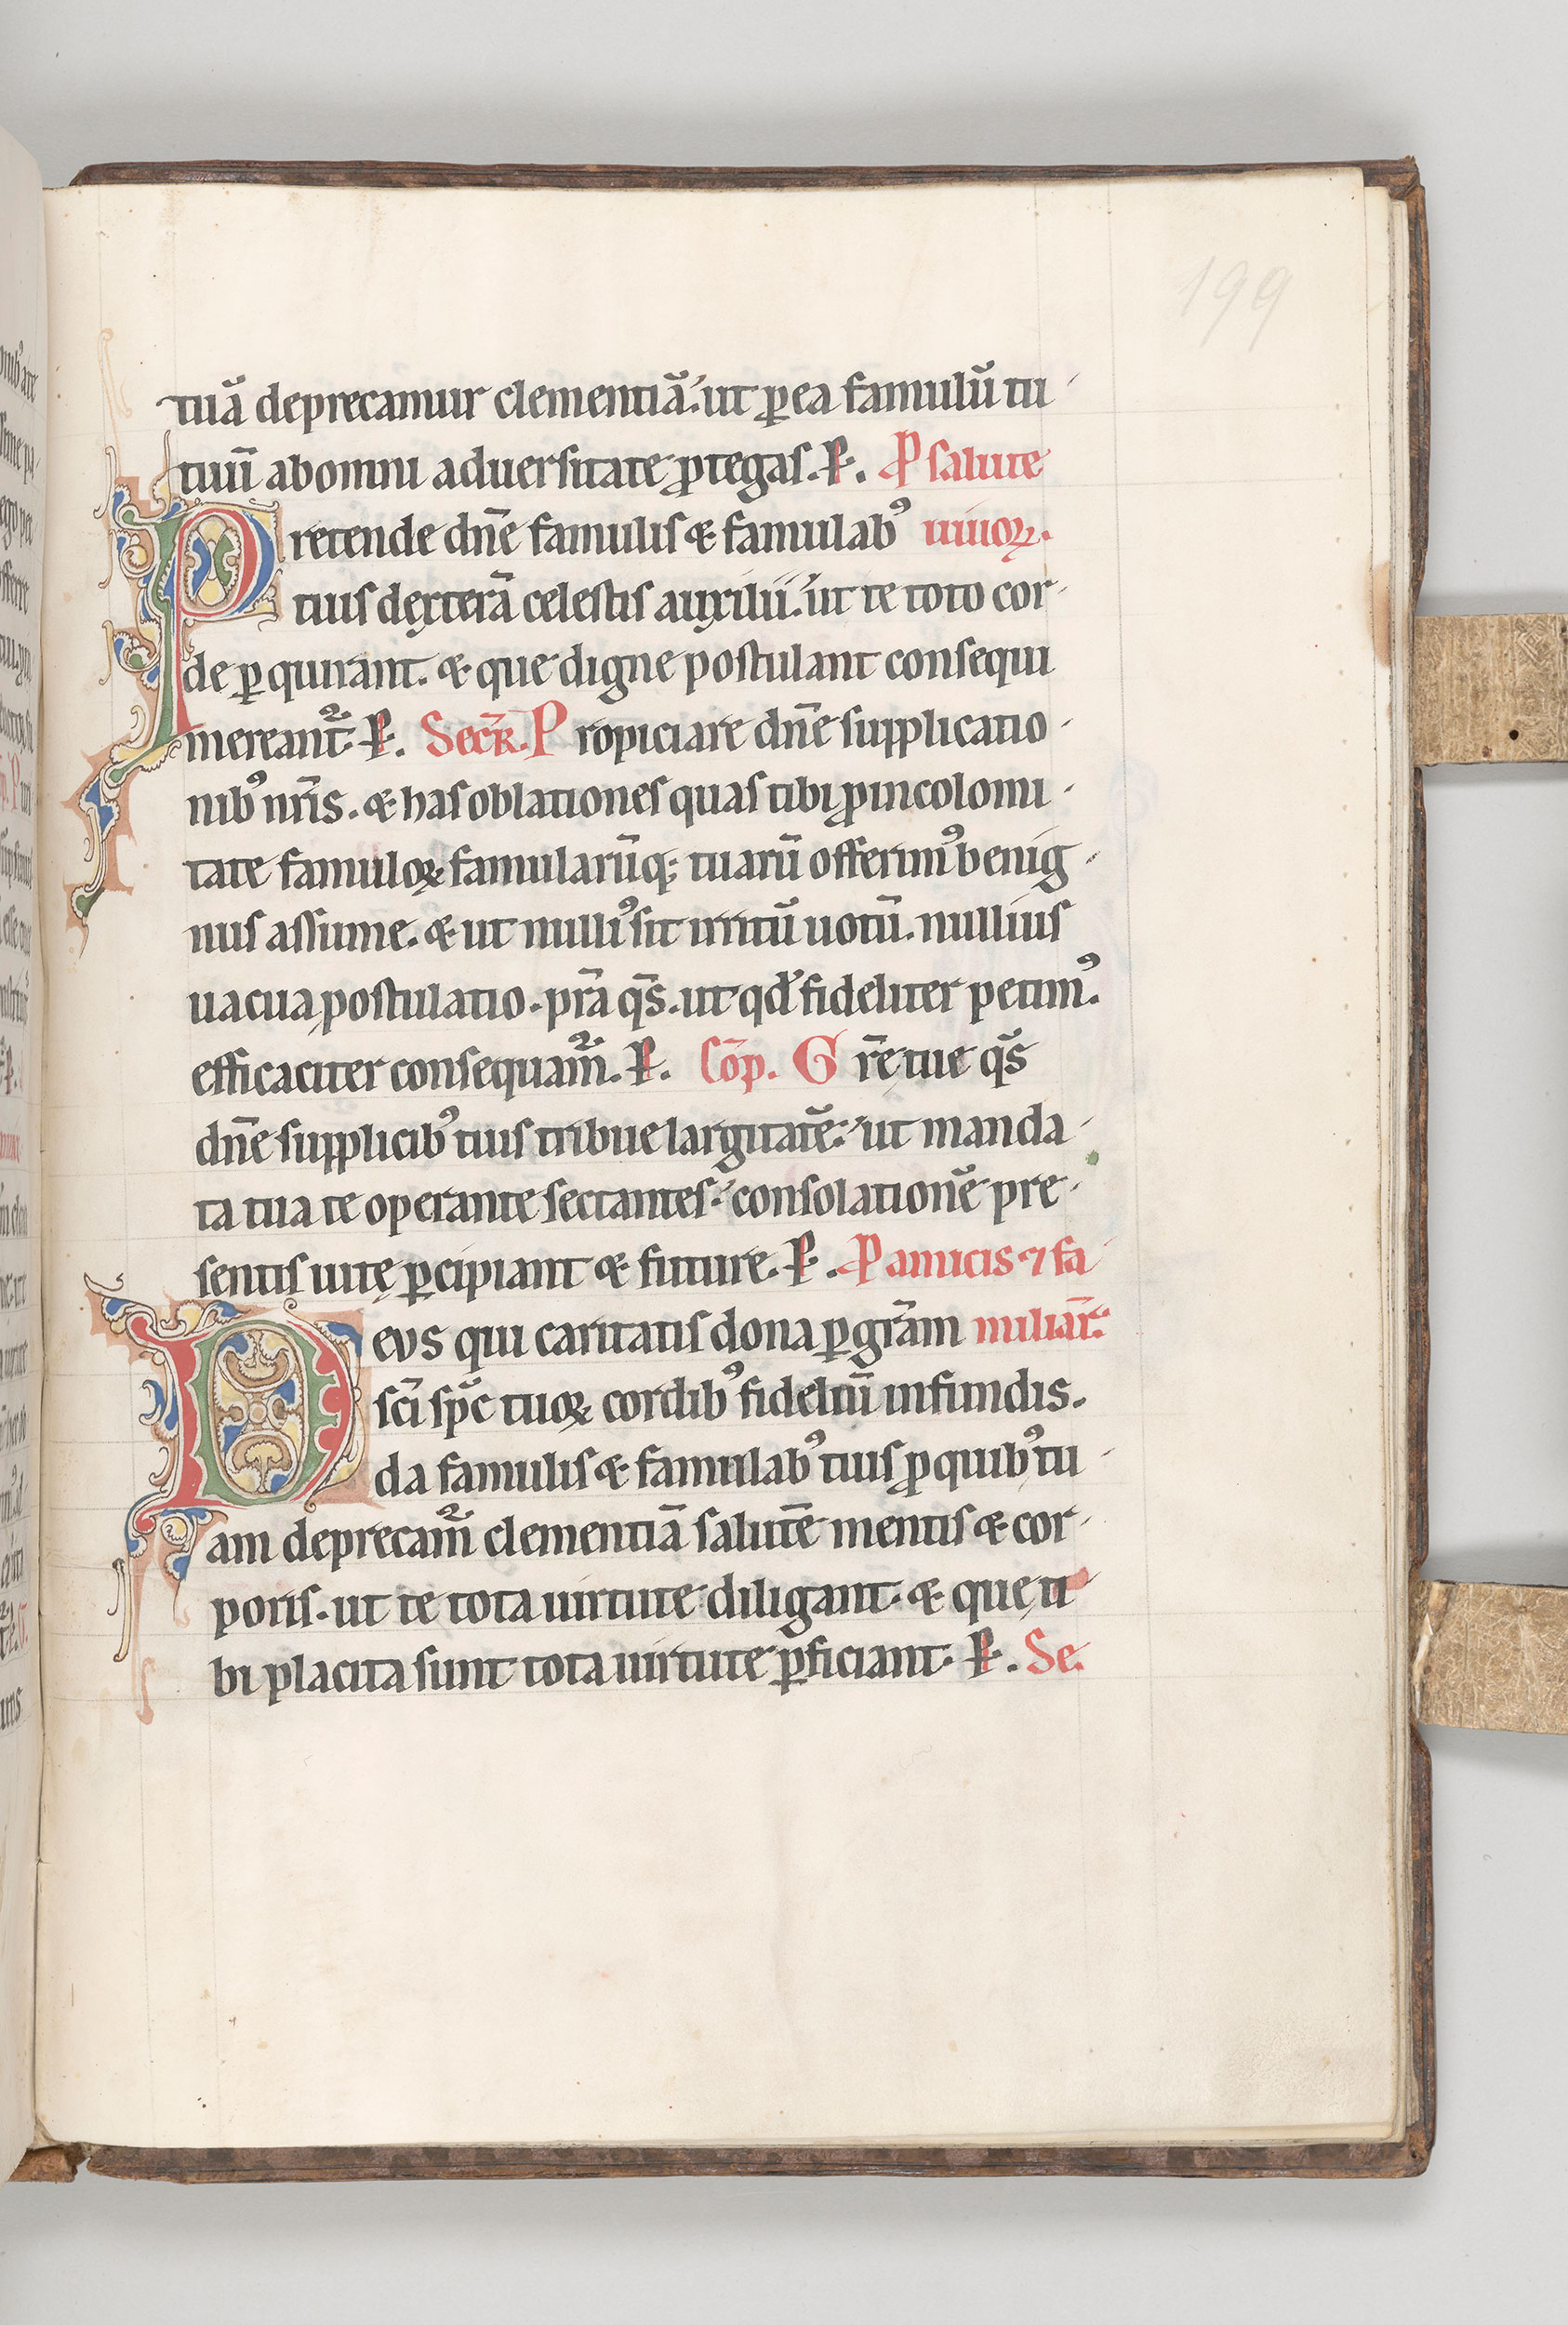 199
tuā deprecamur clementiā. ut ꝑ ea famulū tu-
tuū ab omni aduersitate ꝓtegas. P. P salute
Pretende dn̄e famulis & famulabꝰ uiuoꝝ.
tuis dęxterā celestis auxilii. ut te toto cor-
de ꝑquirant. & que digne postulant consequi
mereant᷑. P. Secr̄. Propiciare dn̄e supplicatio-
nibꝰ nr̄is. & has oblationes quas tibi ꝓ incolomi-
tate famuloꝝ famularūq; tuarū offerimꝰ benig-
nus assume. & ut nulliꝰ sit irritū uotū. nullius
uacua postulatio. pr̄a qs̄. ut qd̓ fideliter petimꝰ.
efficaciter consequam᷑. P. Cōp. Gr̄ę tue qs̄
dn̄e supplicibꝰ tuis tribue largitatē. ut manda-
ta tua te operante sectantes. consolationē pre-
sentis uitę ꝑcipiant & future. P. P amicis ⁊ fa
Deus qui caritatis dona ꝑ gr̄am miliar̄.
sci̅ sp̄c tuoꝝ cordibꝰ fideliū infundis.
da famulis & famulabꝰ tuis ꝓ quibꝰ tu-
am deprecam᷑ clementiā salutē mentis & cor-
poris. ut te tota uirtute diligant. & quę ti-
bi placita sunt tota uirtute ꝑficiant. P. Se.